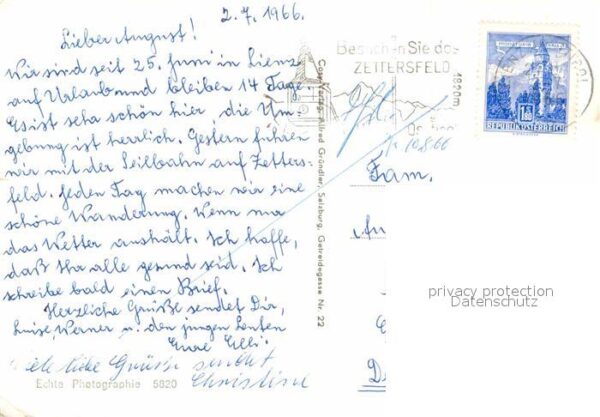 2.7.1966.
Lieber August!
Wir sind seit 25. Juni in Lienz
auf Urlaub und bleiben 14 Tage.
Es ist sehr schön hier, die Um-
gebung ist herrlich. Gestern fuhren
wir mit der Seilbahn auf Zetters-
feld. Jeden Tag machen wir eine
schöne Wanderung. Wenn nur
das Wetter anhält. Ich hoffe,
daß Ihr alle gesund seid. Ich
schreibe bald einen Brief.
Herzliche Grüße sendet Dir,
Luise, Werner u. den jungen Leuten
Eure Elli.
liebe Grüße sendet
Christine
Echte Photographie 5820
Alfred Gründler, Salzburg, Getreidegasse Nr. 22
Besuchen Sie das
ZETTERSFELD
1820m
REPUBLIK ÖSTERREICH
10.8.66
Fam.
privacy protection
Datenschutz